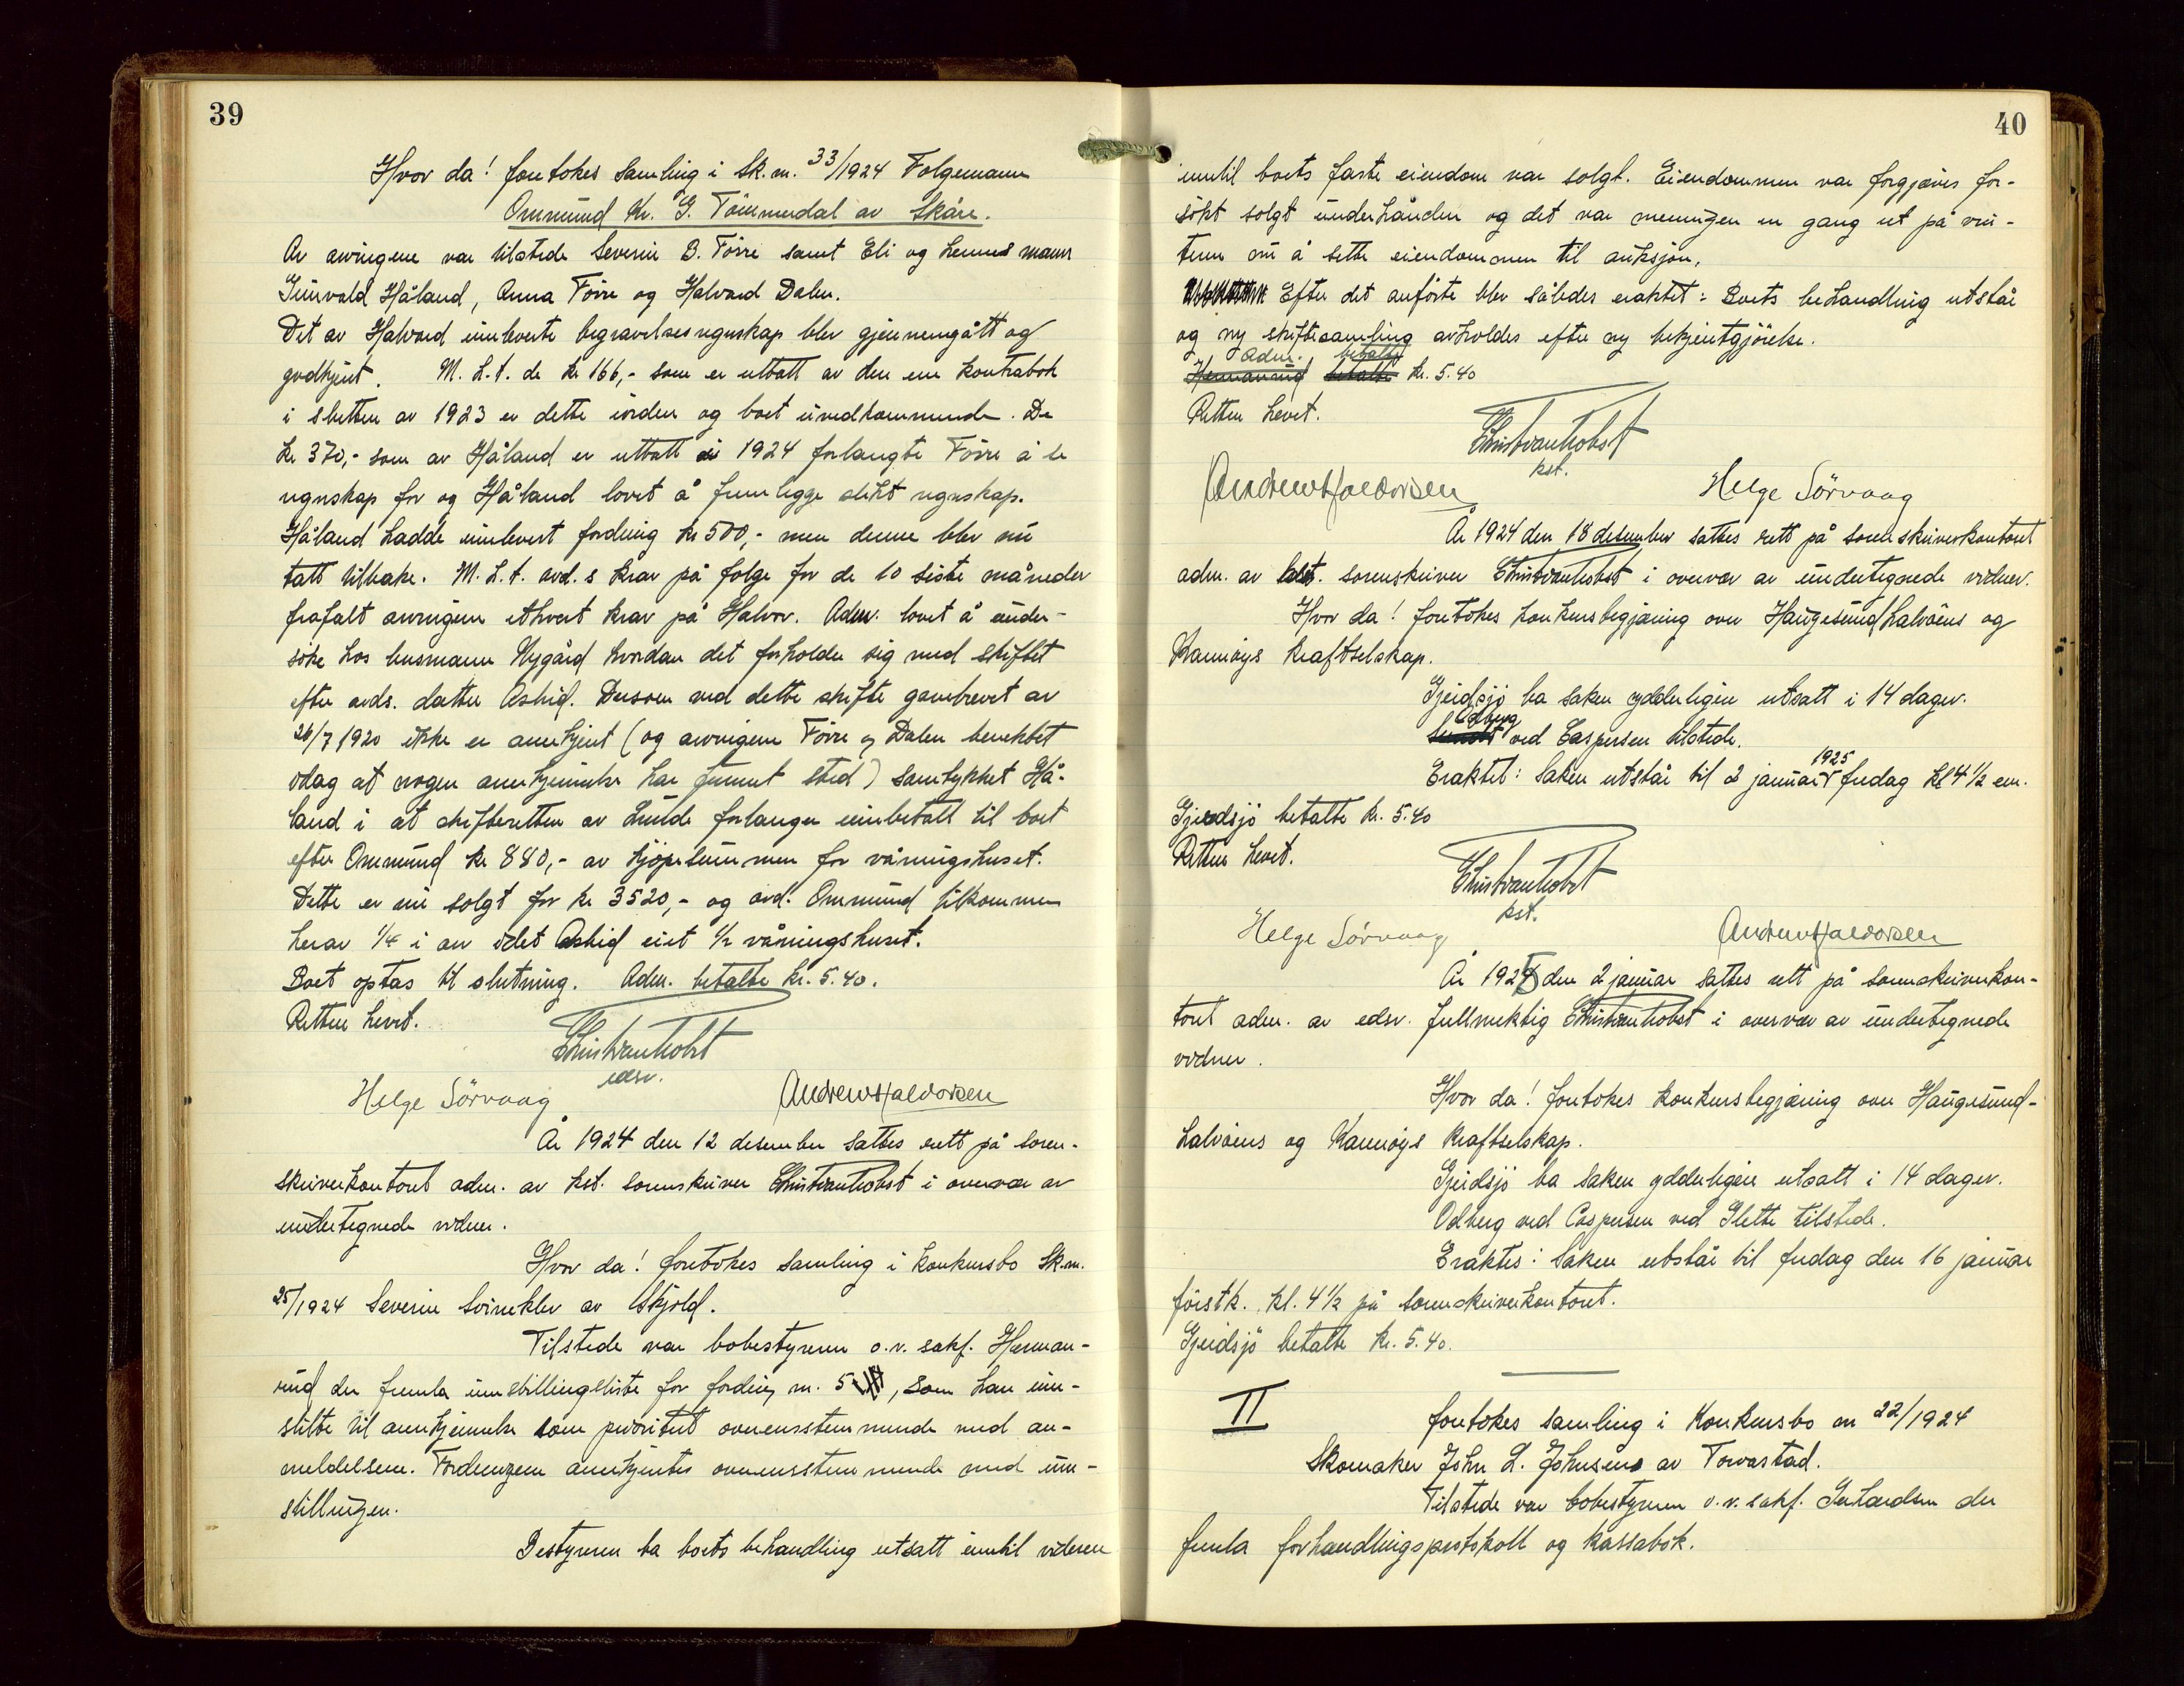 39
Hvor da! foretokes samling i Sk.m. 33/1924 Folgemann
Ommund Kr. G. Tömmerdal av Skåre.
Av arvingene var tilstede Severin B. Förre samt Eli og hennes mann
Gunvald Håland, Anna Förre og Halvard Dalen.
Det av Halvard innleverte begravelsesregnskap blev gjennemgått og
godkjent. M. h. t. de kr 166,- som er uttatt av den ene kontrabok
i slutten av 1923 er dette iorden og boet uvedkommende. De
kr 370,- som av Håland er uttatt i 1924 forlangte Förre å se
regnskap for og Håland lovet å fremlegge slikt regnskap.
Håland hadde innlevert fordring kr 500,- men denne blev nu
tatt tilbake. M. h. t. avd.s krav på folge for de 10 siste måneder
frafalt arvingene ethvert krav på Halvor. Adm. lovet å under-
söke hos lensmann Nygård hvordan det forholder sig med skiftet
efter avds. datter Astrid. Dersom ved dette skifte gavebrevet av
26/7 1920 ikke er anerkjent (og arvingene Förre og Dalen benektet
idag at nogen anerkjennelse har funnet sted) samtykket Hå-
land i at skifteretten av Lunde forlanger innbetalt til boet
efter Ommund kr 880,- av kjöpesummen for våningshuset.
Dette er nu solgt for kr 3520,- og avd. Ommund tilkommer
herav 1/4 i arv idet Astrid eiet 1/2 våningshuset.
Boet optas til slutning. Adm. betalte kr. 5.40.
Retten hevet.
Christian Kobst
edsv.
Helge Sörvaag Andrew Haldorsen
År 1924 den 12 desember sattes rett på soren-
skriverkontoret adm. av kst. sorenskriver Christian Kobst i overvær av
undertegnede vidner.
Hvor da! foretokes samling i konkursbo Sk.m.
25/1924 Severin Svineklev av Skjold.
Tilstede var bobestyreren o.r. sakf. Herman-
rud der fremla innstillingsliste for fordring nr. 5, som han inn-
stilte til anerkjennelse som prioritert overensstemmende med an-
meldelsen. Fordringen anerkjentes overensstemmende med inn-
stillingen.
Bestyreren ba boets behandling utsatt inntil videre
40
inntil boets faste eiendom var solgt. Eiendommen var forgjæves for-
sökt solgt underhånden og det var meningen en gang ut på vin-
teren nu å sette eiendommen til auksjon.
Efter det anförte blev således eraktet: Boets behandling utstår
og ny skiftesamling avholdes efter ny bekjentgjörelse.
Adm. betalte
Hermanrud betalte kr. 5.40
Retten hevet.
Christian Kobst
kst.
Andrew Haldorsen Helge Sörvaag
År 1924 den 18 desember sattes rett på sorenskriverkontoret
adm. av kst. sorenskriver Christian Kobst i overvær av undertegnede vidner.
Hvor da! foretokes konkursbegjæring over Haugesundhalvöens og
Karmöys kraftselskap.
Gjerdsjö ba saken ydderligere utsatt i 14 dager.
Odberg
ved Caspersen tilstede.
1925
Eraktet: Saken utstår til 2 januar fredag kl 4 1/2 em.
Gjerdsjö betalte kr. 5.40
Retten hevet.
Christian Kobst
kst.
Helge Sörvaag Andrew Haldorsen
År 1925 den 2 januar sattes rett på sorenskriverkon-
toret adm. av edsv. fullmektig Christian Kobst i overvær av undertegnede
vidner.
Hvor da! foretokes konkursbegjæring over Haugesund-
halvöens og Karmöys kraftselskap.
Gjerdsjö ba saken ydderligere utsatt i 14 dager.
Odberg ved Caspersen ved Slette tilstede.
Eraktes: Saken utstår til fredag den 16 januar
förstk. kl. 4 1/2 på sorenskriverkontoret.
Gjerdsjö betalte kr. 5.40.
II foretokes samling i Konkursbo nr 22/1924
Skomaker John L. Johnsens av Torvastad.
Tilstede var bobestyreren o.r. sakf. Gerhardsen der
fremla forhandlingsprotokoll og kassabok.